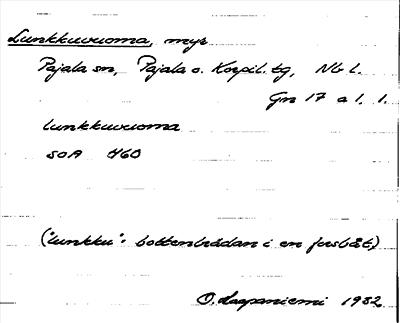 Lunkkuvuoma, myr
Pajala sn, Pajala o. Korpil. tg, Nb l.
Gn 17 a 1. 1.
lunkkuvuoma
SOA 460
("lunkku": bottenbrädan i en forsbåt)
O. Laapaniemi 1932